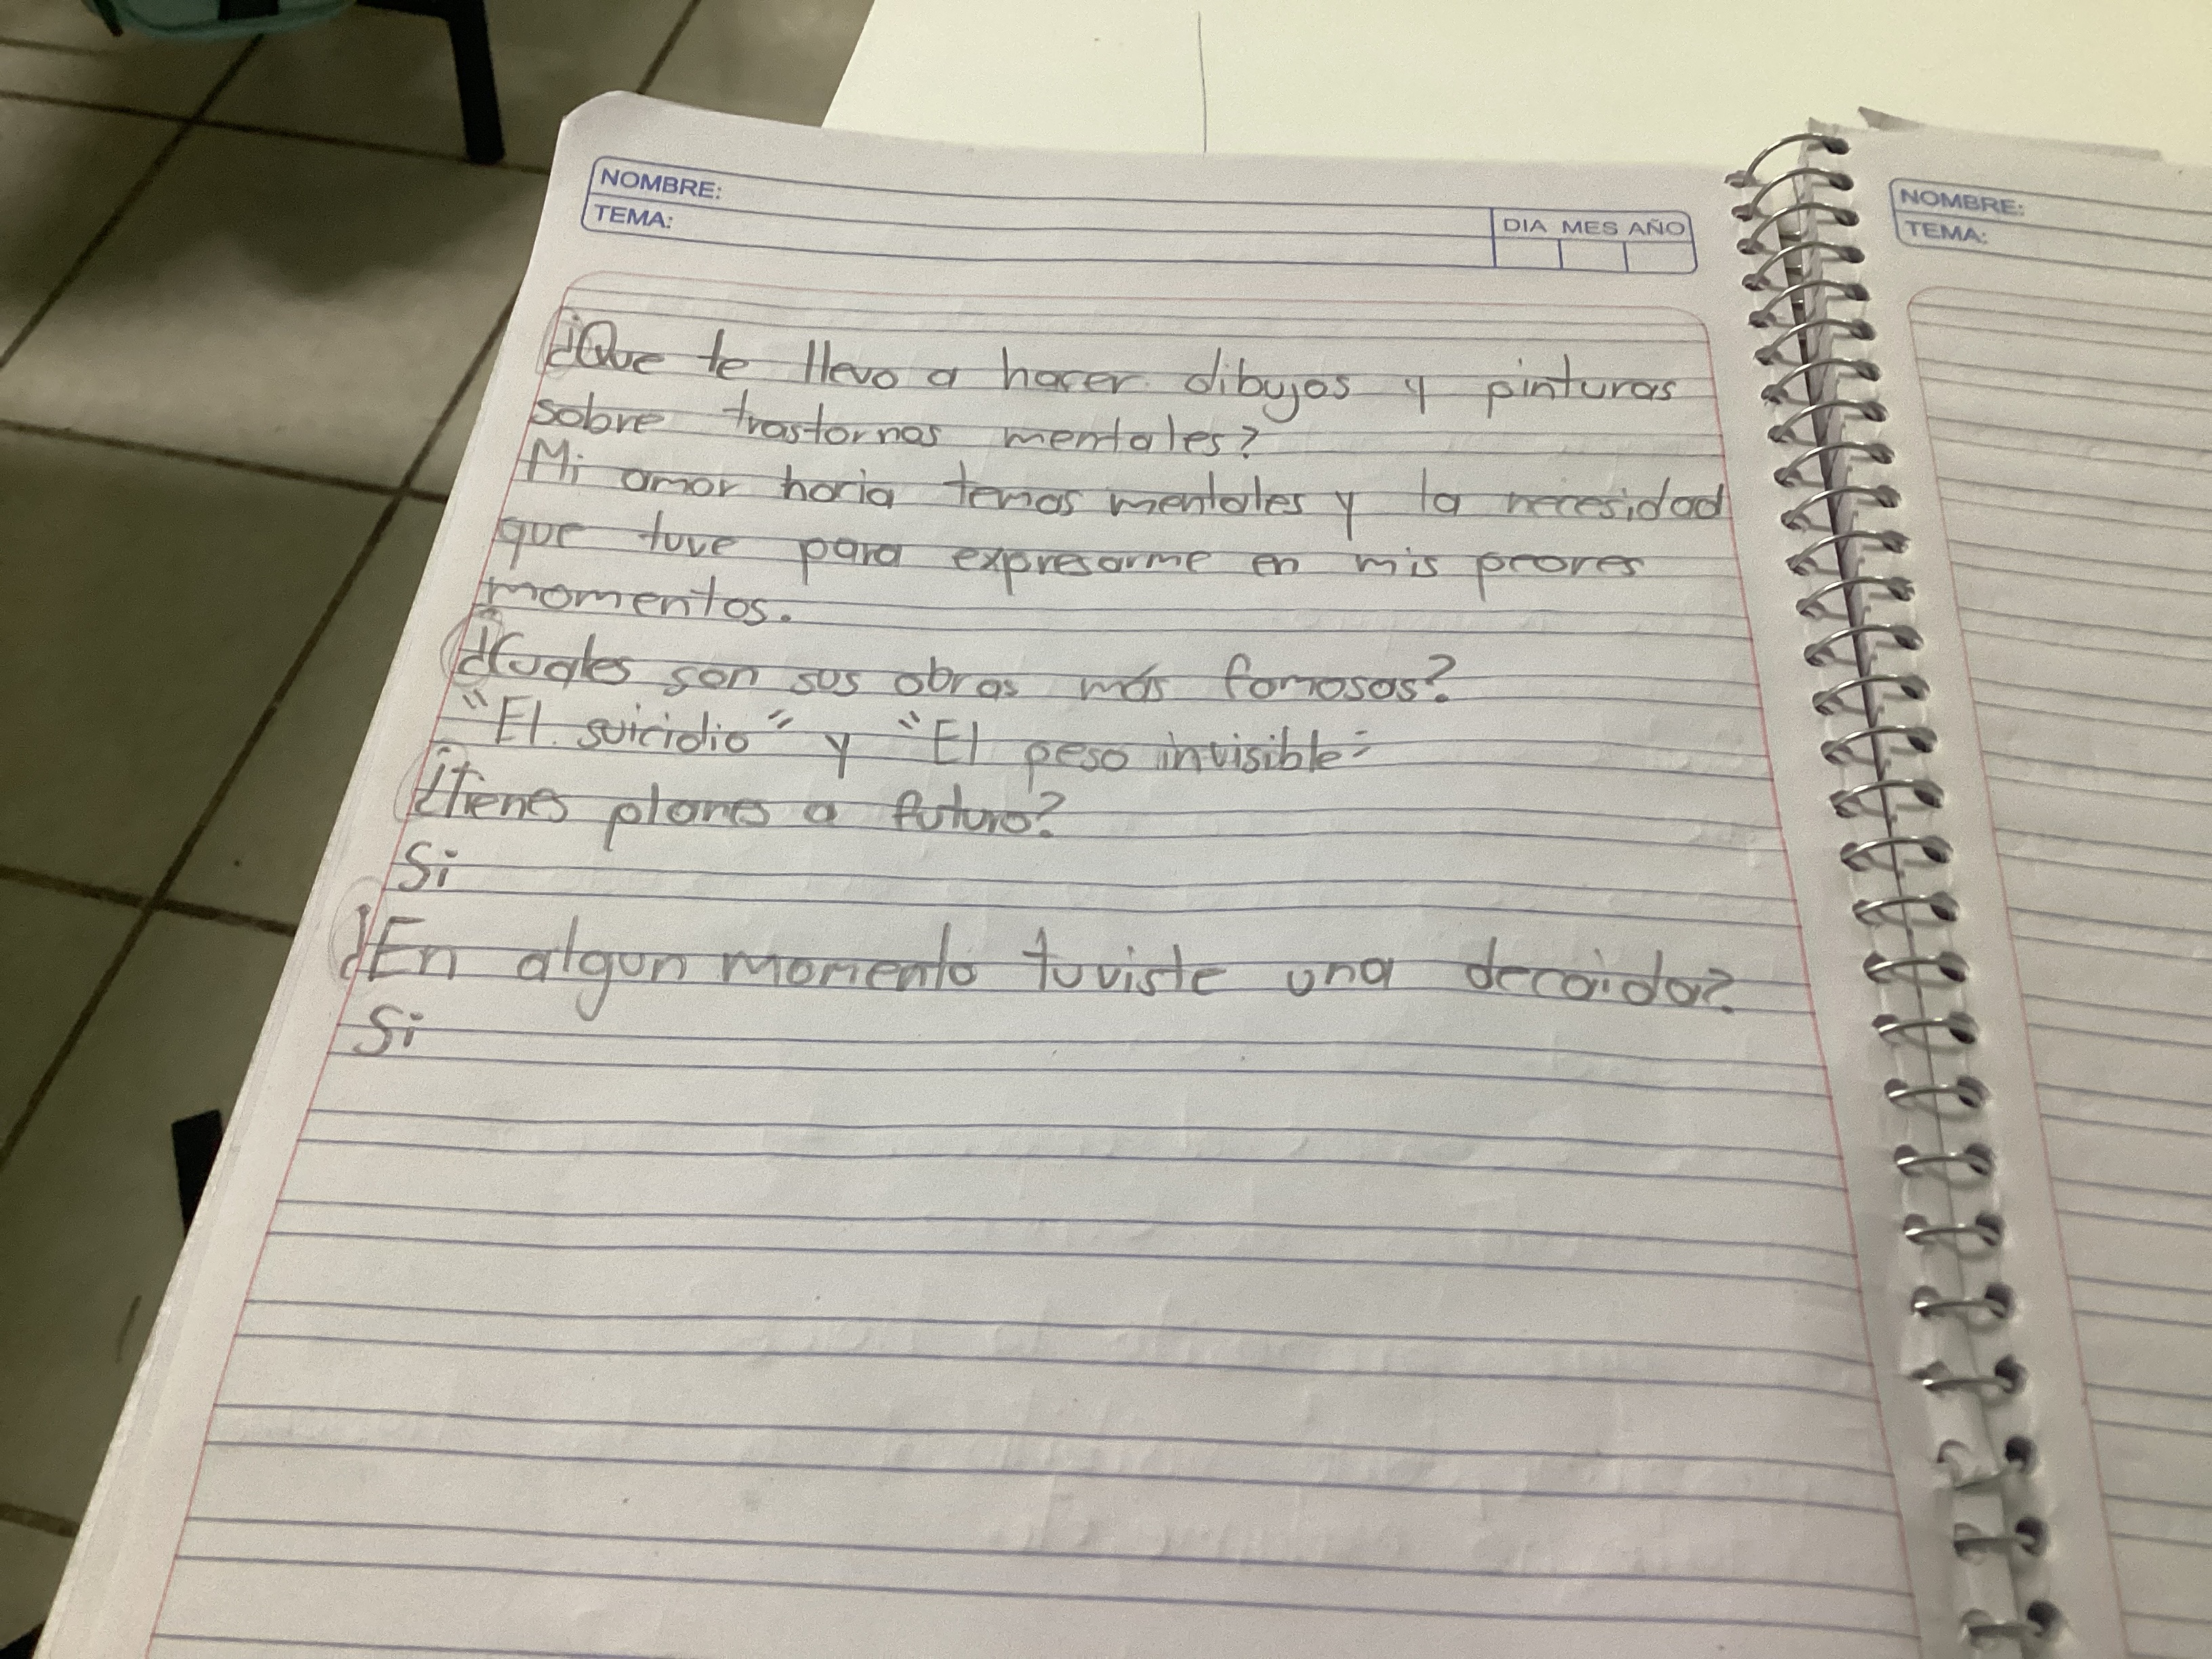 NOMBRE:
TEMA:
DIA MES AÑO
¿Que te llevo a hacer dibujos y pinturas
sobre trastornos mentales?
Mi amor hacia temas mentales y la necesidad
que tuve para expresarme en mis peores
momentos.
¿Cuales son sus obras más famosas?
"El suicidio" y "El peso invisible"
¿tienes planes a futuro?
Si
¿En algun momento tuviste una decaida?
Si
NOMBRE:
TEMA: